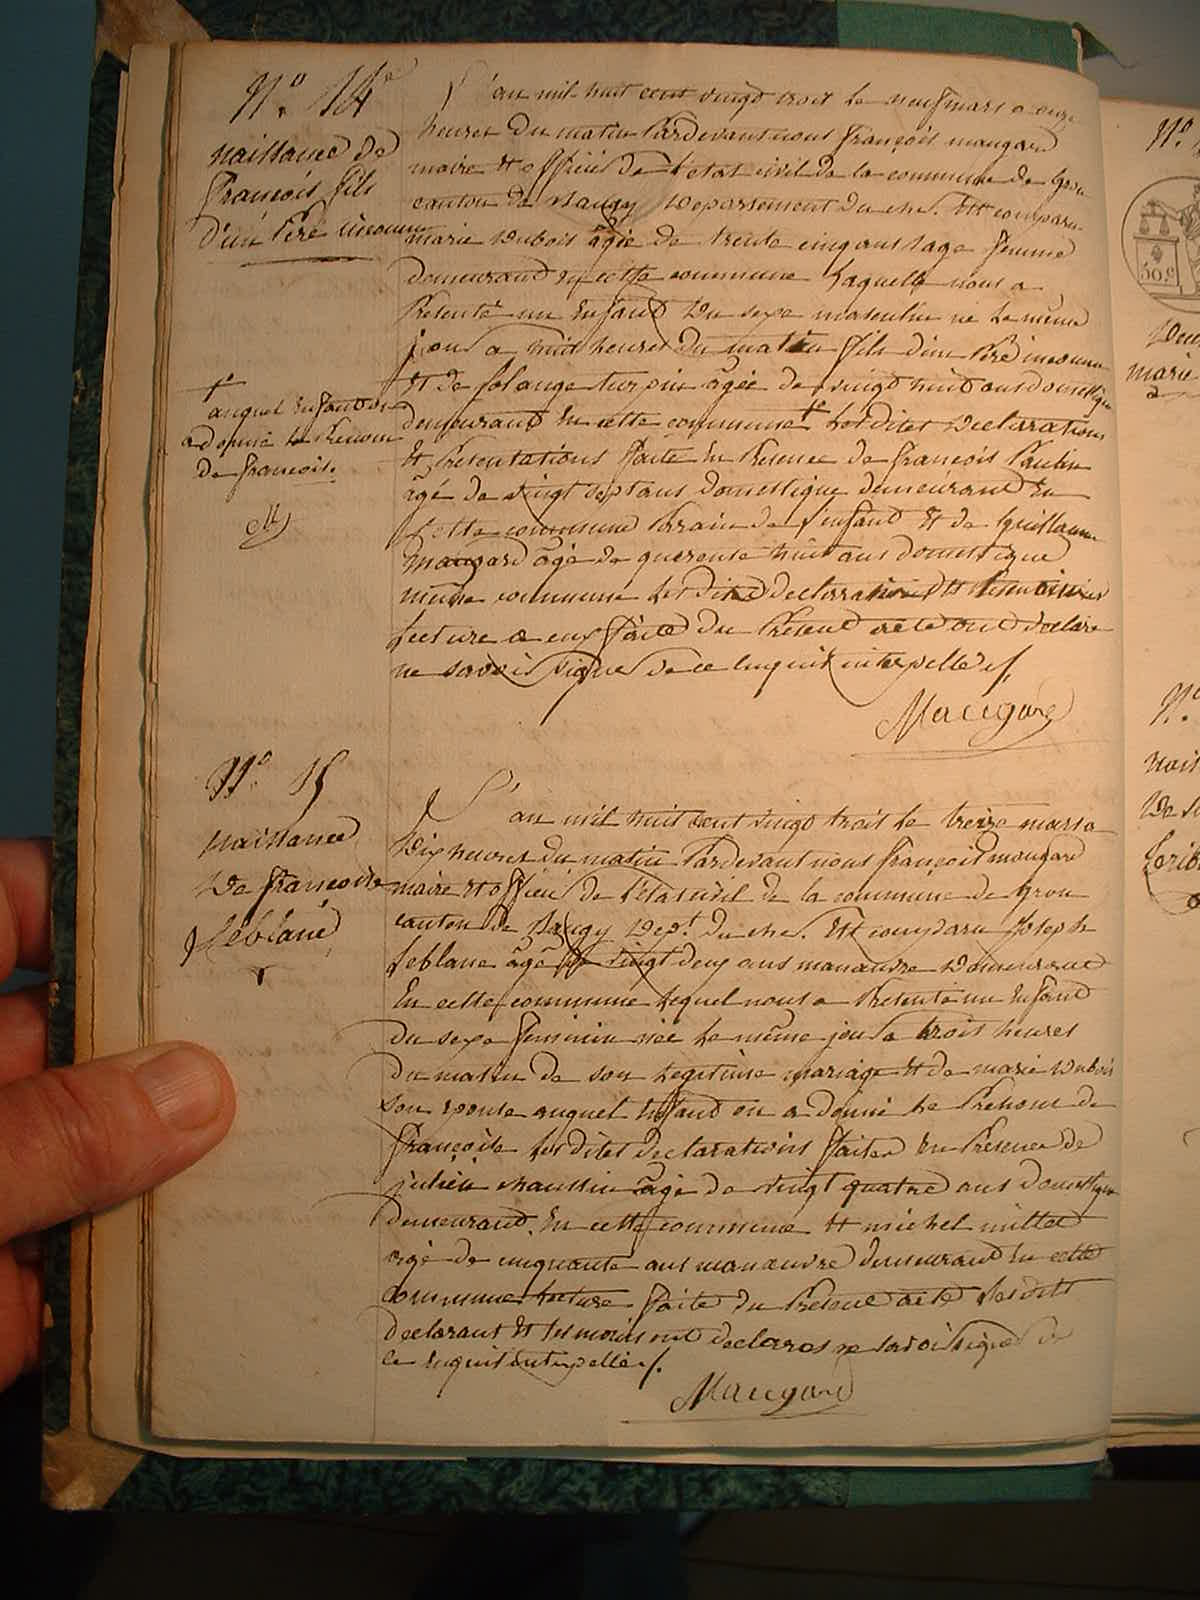 N.º 14e
naissance de
François fils
d'un Pere inconnu
L'an mil huit cent vingt trois le neuf mars a onze
heures du matin Pardevant nous françois maugard
maire et officier de l'etat civil de la commune de Gron
canton de Baugy Departement du cher. Est comparu
marie Dubois âgée de trente cinq ans sage femme
demeurand en cette commune Laquelle nous a
Presenté un Enfant du sexe masculin né le même
jour a huit heures du matin fils d'un Peré inconnu
et de solange turpin âgée de vingt huit ans domestique
demeurand En cette commune † Lesdites Declarations
et Presentations faite En Presence de françois Paulin
âgé de vingt sept ans domestique demeurand En
Cette commune Parain de l'enfant et de Guillaume
maugard âgé de quarente huit ans domestique
même commune Lesdites declarations Et
Lecture a eux faite du Present acte ont declare
ne savoir signer de ce Enquis interpellés
Maugard
† auquel Enfant on
a donné le Prenom
de francois.
M
N.º 15
Naissance
De francoise
Leblanc
L'an mil huit cent vingt trois le treize mars a
Dix heures du matin Pardevant nous françois maugard
maire et officier de l'etat civil de la commune de gron
canton de Baugy Dept. du cher. Est comparu Joseph
leblanc âgé de vingt deux ans manœuvre Demeurant
En cette commune Lequel nous a Presenté un Enfant
du sexe feminin née le même jour a trois heures
du matin de son Legitime mariage et de marie Dubois
son epouse auquel Enfant on a donné Le Prenom de
françoise Lesdites declarations faites En Presence de
julien âgé de vingt quatre ans domestique
demeurand En cette commune et michel millet
âgé de cinquante ans manœuvre demeurand En cette
commune Lecture faite du Present acte lesdits
declarant et temoins ont declares ne savoir signer de
ce Enquis interpellés.
Maugard
N.º
Deux
marie
50.c
N.º
nais
De s